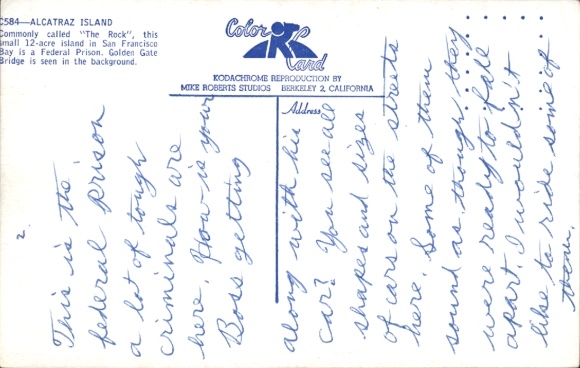 C584—ALCATRAZ ISLAND
Commonly called "The Rock", this
small 12-acre island in San Francisco
Bay is a Federal Prison. Golden Gate
Bridge is seen in the background.
Color
Card
KODACHROME REPRODUCTION BY
MIKE ROBERTS STUDIOS BERKELEY 2, CALIFORNIA
Address
2
This is the
federal prison
a lot of tough
criminals are
here. How is your
Boss getting
along with his
car? You see all
shapes and sizes
of cars on the streets
here. Some of them
sound as though they
were ready to fall
apart. I wouldn't
like to ride some of
them.